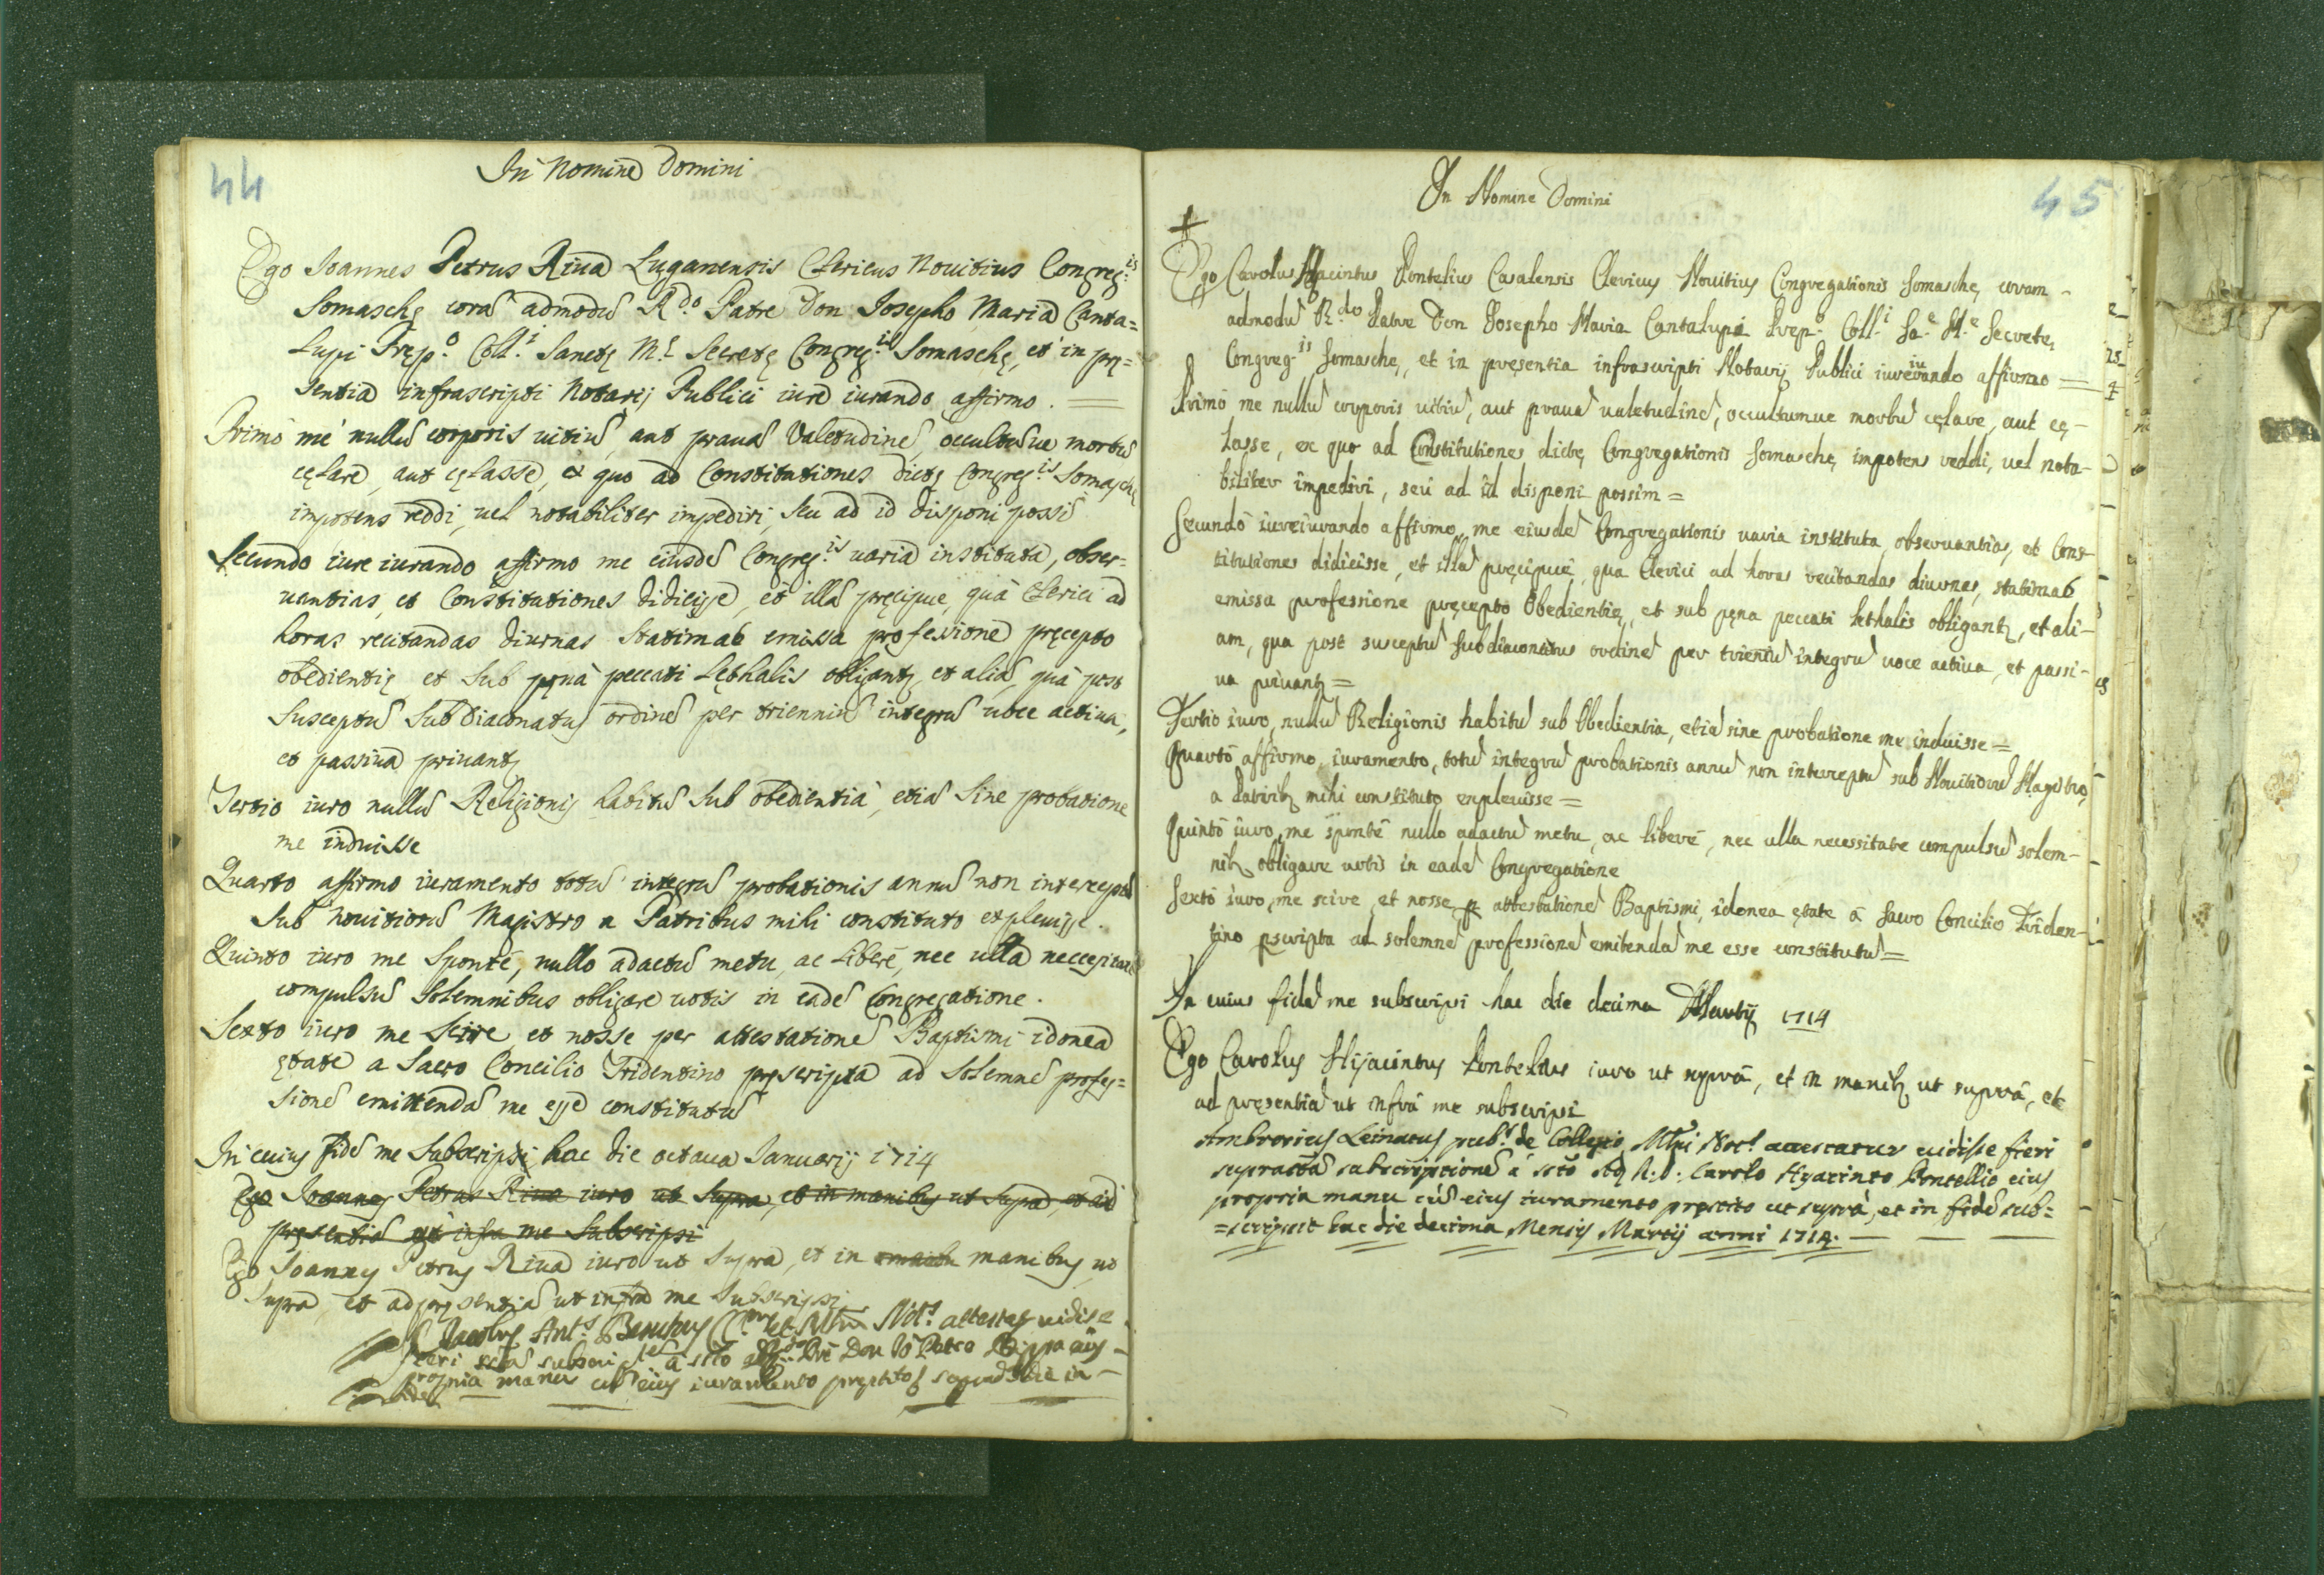 44
In Nomine Domini
Ego Joannes Petrus Riua Luganensis Clericus Nouitius Congreg.is
Somaschę corã admodũ R.do Patre Don Josepho Maria Canta=
Lupi Pręp.o Coll.i Sanctę M.ę Secretę Congreg.is Somaschę, et in prę=
sentia infrascripti Notarij Publici iure iurando affirmo. =
Primò me nullũ corporis uitiũ, aut prauã Valetudinẽ, occultũue morbũ
cęlare, aut cęlasse, ex quo ad Constitutiones dictę Congreg.is Somaschę
impotens reddi, uel notabiliter impediri, seu ad id disponi possĩ
Secundo iure iurando affirmo me eiusdẽ Congreg.is uaria instituta, obser=
uantias, et Constitutiones didicisse, et illã pręcipue, quâ Clerici ad
horas recitandas diurnas statim ab emissa professione pręcepto
obedientię et sub pęnâ peccati Lęthalis obligantʒ et aliã, quâ post
susceptũ Subdiaconatus ordinẽ per trienniũ integrũ uoce actiua,
et passiua priuantʒ
Tertio iuro nullũ Religionis habitũ sub obedientiâ, etiã sine probatione
me induisse
Quarto affirmo iuramento totũ integrũ probationis annũ non interceptũ
sub Nouitiorũ Magistro a Patribus mihi constituto expleuisse.
Quinto iuro me sponte, nullo adactũ metu, ac Liberè, nec ulla neccessitate
compulsũ Solemnibus obligare uotis in eadẽ Congregatione.
Sexto iuro me scire et nosse per attestationẽ Baptismi idonea
ętate a Sacro Concilio Tridentino pręscripta ad Solemnẽ profes=
sionẽ emittendã me esse constitutũ
In cuius fidẽ me Subscripsi hac die octaua Januarij 1714
Ego Joannes Petrus Riua iuro ut Supra, et in manibus ut Supra, et ad
pręsentiã ut infra me Subscripsi
Ego Joannes Petrus Riua iuro ut Supra, et in manibus ut
Supra, et ad pręsentiã ut infra me Subscripsi
Jacobus Ant.s Not.s attestas uidisse
fieri subscr. à Don Petro
propria manu cũ eius iuramento pręstito die
45
In Nomine Domini
Ego Carolus Hyacintus Pontelius Casalensis Clericus Nouitius Congregationis Somaschę, coram
admodũ R.do Patre Don Josepho Maria Cantalupi Pręp.o Coll.i Sa.e M.e Secretę,
Congreg.is Somaschę, et in pręsentia infrascripti Notarij Publici iureiurando affirmo =
Primò me nullũ corporis uitiũ, aut prauã ualetudinẽ, occultumue morbũ cęlare, aut cę-
lasse, ex quo ad Constitutiones dictę Congregationis Somaschę impotens reddi, uel nota-
biliter impediri, seù ad id disponi possim =
Secundò iureiurando affirmo me eiusdẽ Congregationis uaria instituta obseruantias, et Cons-
titutiones didicisse, et illã pręcipuè, qua Clerici ad horas recitandas diurnas, statim ab
emissa professione pręcepto Obedientię, et sub pęna peccati lethalis obligantʒ, et ali-
am, qua post susceptũ subdiaconatus ordinẽ per trieniũ integrũ uoce actiua, et passi-
ua priuantʒ =
Tertio iuro, nullũ Religionis habitũ sub Obedientia, etiã sine probatione me induisse =
Quartò affirmo iuramento, totũ integrũ probationis annũ non interceptũ sub Nouitiorũ Magistro,
a Patribʒ mihi constituto expleuisse =
Quintò iuro, me spontè nullo adactũ metu, ac liberè, nec ulla necessitate compulsũ solem-
nibʒ obligare uotis in eadẽ Congregatione
Sextò iuro, me scire et nosse p attestationẽ Baptismi, idonea ętate à Sacro Concilio Triden-
tino pscripta ad solemnẽ professionẽ emitendã me esse constitutũ =
In cuius fidẽ me subscripsi hac die decima Martij 1714
Ego Carolus Hijacintus Pontelius iuro ut suprà, et in manibʒ ut suprà, et
ad pręsentiã ut infrà me subscripsi
Ambrosius Leinatus pub.s de Collegio Mlni Not.s attestatur uidisse fieri
suprascriptã subscriptionẽ à Carolo Hyacinto Pontellio eius
propria manu cũ eius iuramento pręstito ut suprà, et in fidẽ sub=
=scripsit hac die decima Mensis Martij anni 1714.